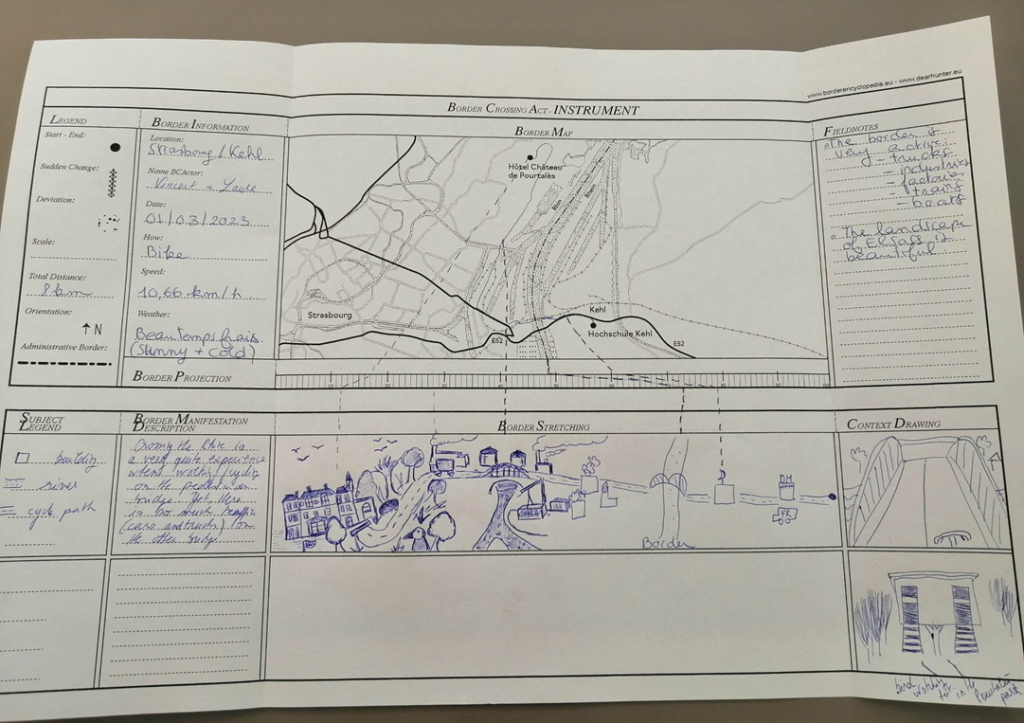 www.borderencyclopedia.eu - www.dearhunter.eu
BORDER CROSSING ACT - INSTRUMENT
LEGEND
Start - End:
Sudden Change:
Deviation:
Scale:
Total Distance:
8 km
Orientation:
N
Administrative Border:
BORDER INFORMATION
Location:
Strasbourg / Kehl
Name BCActor:
Vincent + Laure
Date:
01/03/2023
How:
Bike
Speed:
10,66 km/h
Weather:
Beau temps frais
(Sunny + cold)
BORDER PROJECTION
BORDER MAP
Hôtel Château
de Pourtalès
Rhin
Rhein
Strasbourg
Kehl
Hochschule Kehl
E52
E52
FIELDNOTES
The border is
very active:
- trucks
- industries
- factories
- trains
- boats
The landscape
of Elsass is
beautiful
SUBJECT
LEGEND
building
river
cycle path
BORDER MANIFESTATION
DESCRIPTION
Crossing the Rhine is
a very quite experience
when walking/cycling
on the pedestrian
bridge. Yet there
is so much traffic
(cars and trucks) on
the other bridge.
BORDER STRETCHING
DM
FR
Border
CONTEXT DRAWING
bird
in the
park